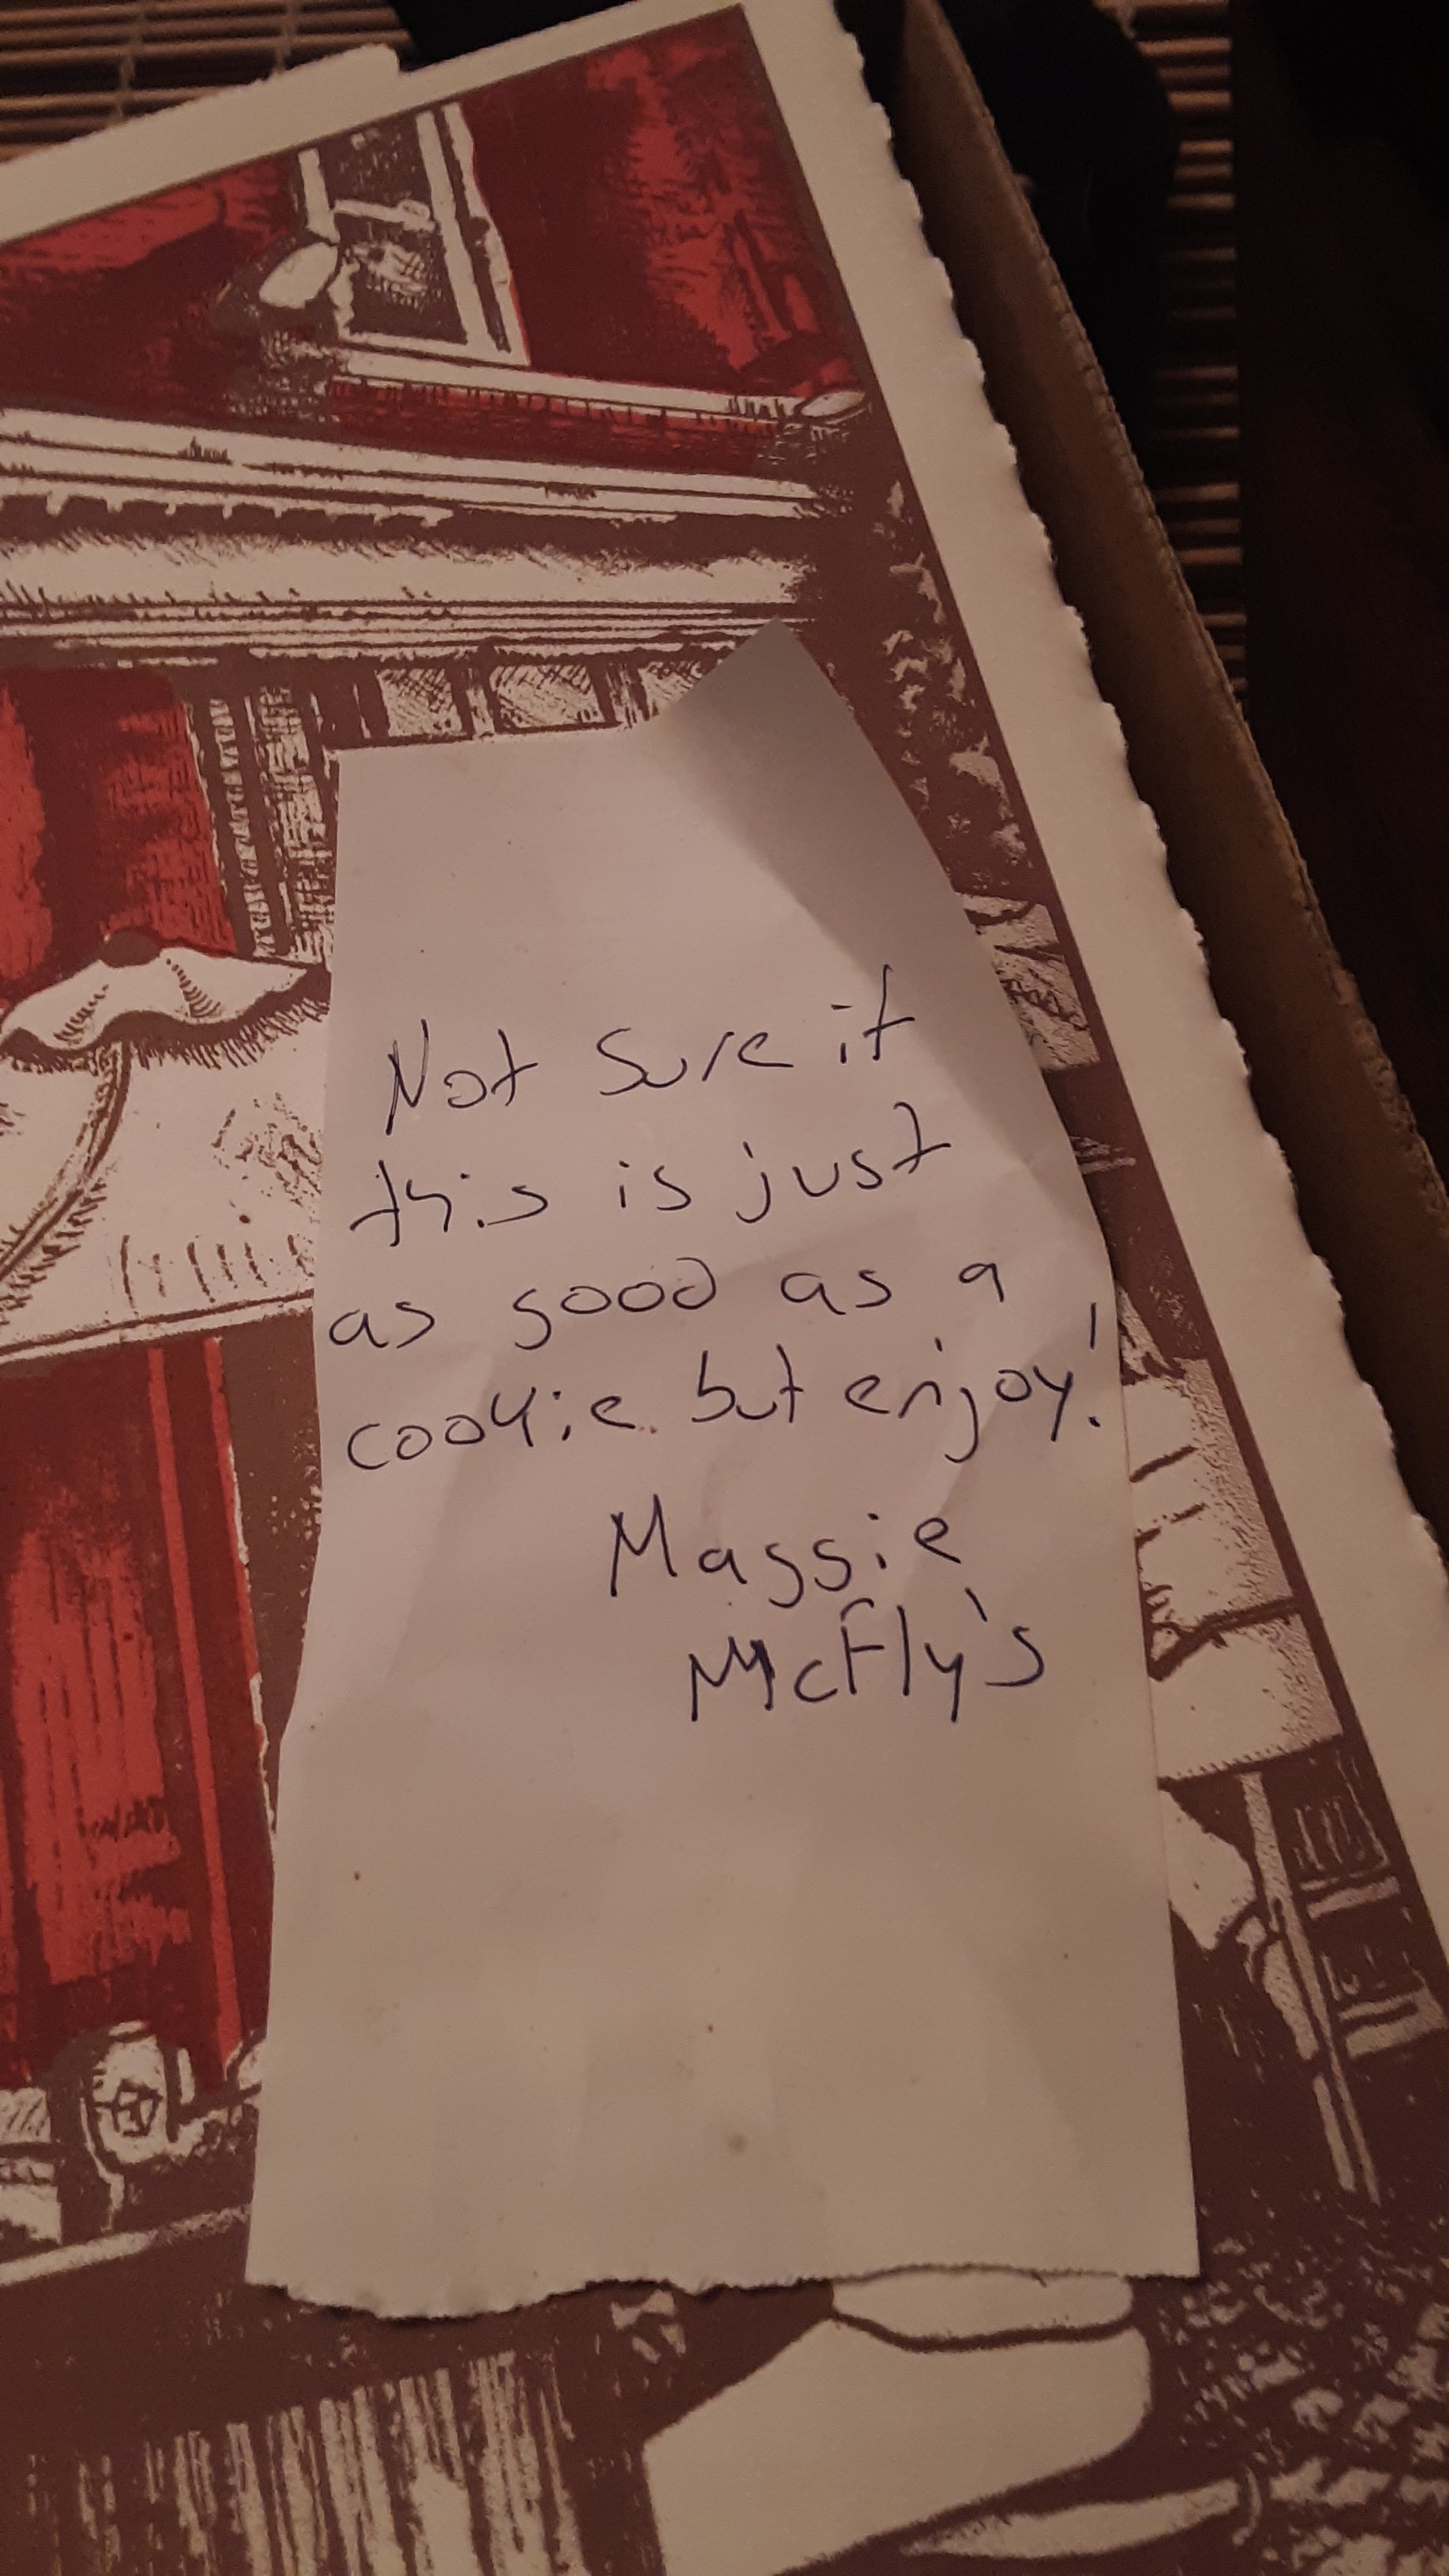 Not Sure if
this is just
as good as a
cookie but enjoy!
Maggie
McFly's